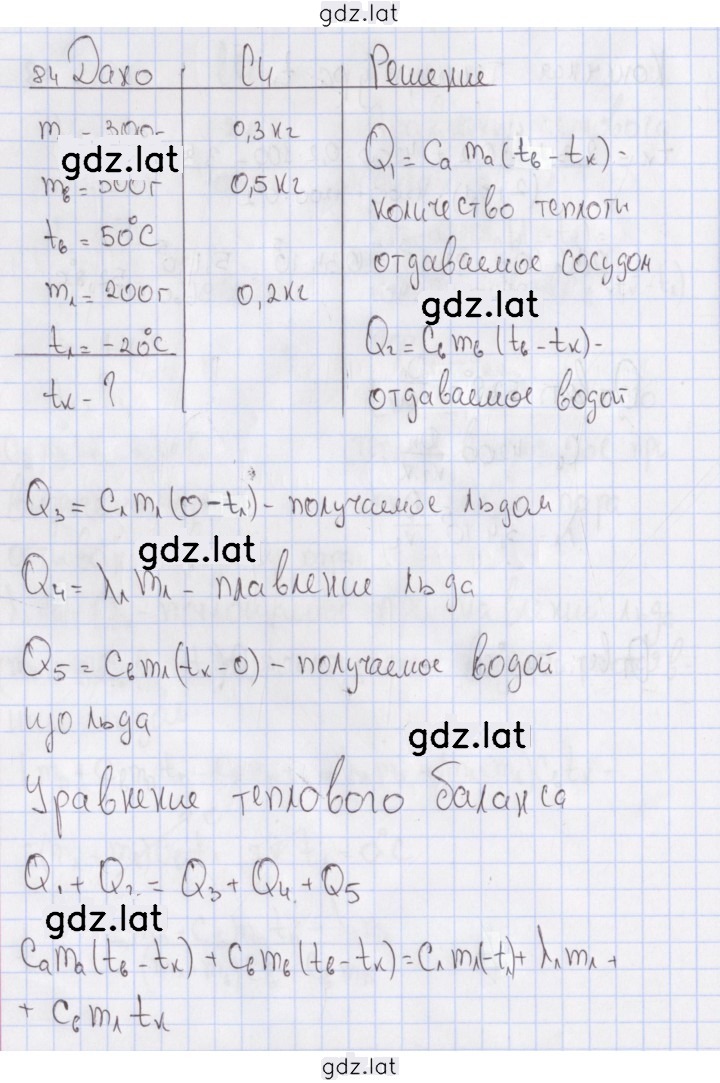 gdz.lat
84 Дано СИ Решение
m - 300г 0,3 кг
Q₁ = Cа mа (tв - tк) -
gdz.lat
mв = 500г 0,5 кг
количество теплоты
tв = 50°C
отдаваемое сосудом
mл = 200г 0,2 кг
gdz.lat
tл = -20°C
Q₂ = Cв mв (tв - tк) -
tк - ?
отдаваемое водой
Q₃ = Cл mл (0 - tл) - получаемое льдом
gdz.lat
Q₄ = λл mл - плавление льда
Q₅ = Cв mл (tк - 0) - получаемое водой
изо льда
gdz.lat
Уравнение теплового баланса
Q₁ + Q₂ = Q₃ + Q₄ + Q₅
gdz.lat
Cа mа (tв - tк) + Cв mв (tв - tк) = Cл mл (-tл) + λл mл +
+ Cв mл tк
gdz.lat